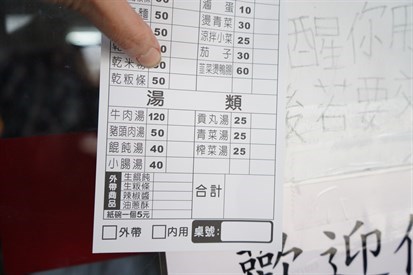 滷蛋 10
燙青菜 30
涼拌小菜 25
茄子 30
韭菜燙鴨腸 60
乾粄條 50
湯類
牛肉湯 120
豬頭肉湯 50
餛飩湯 40
小腸湯 40
貢丸湯 25
青菜湯 25
榨菜湯 25
外帶商品
生餛飩
生粄條
辣椒醬
油蔥酥
紙碗一個5元
合計
外帶 內用 桌號:
醒你用
後若要
歡迎